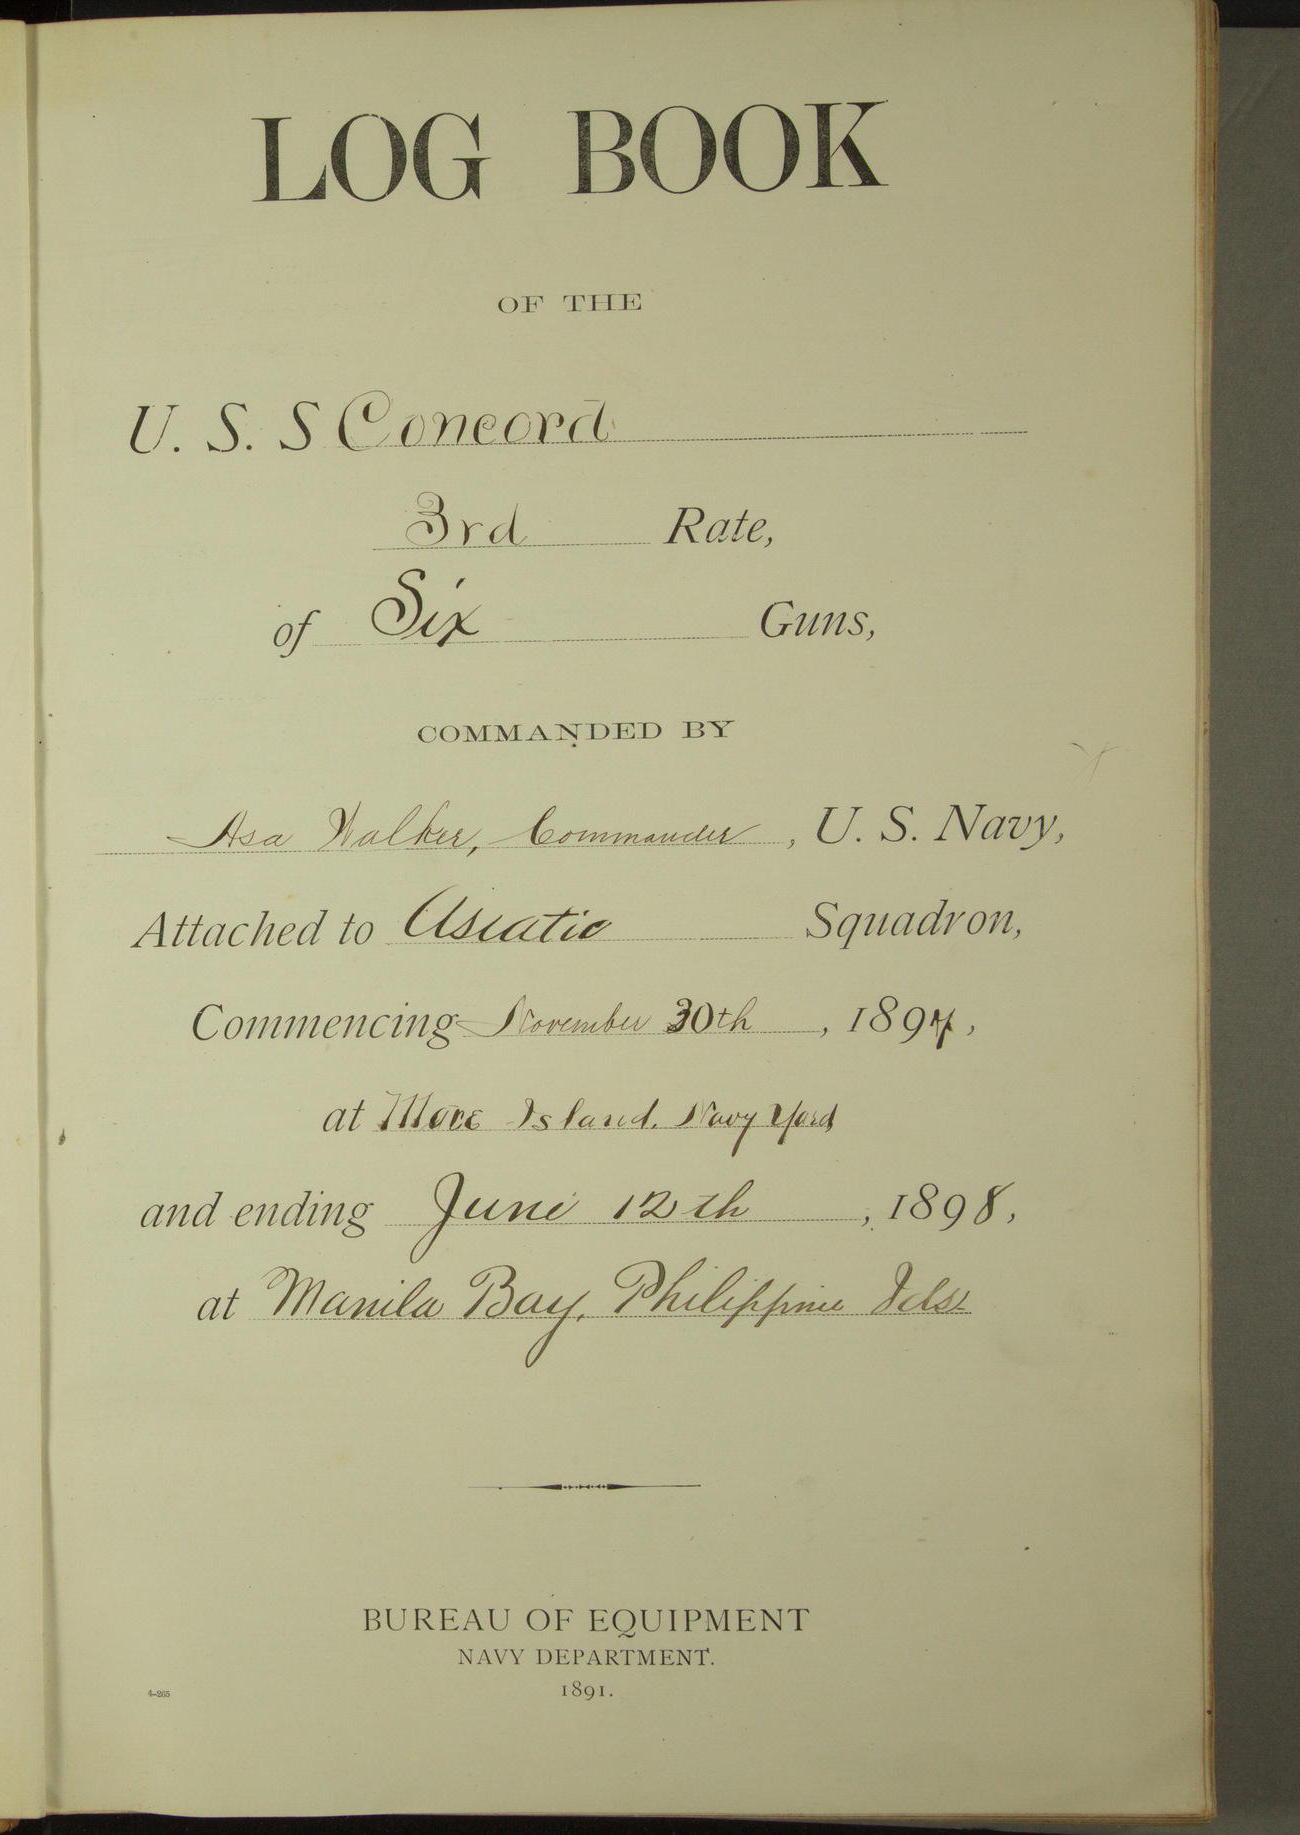 LOG BOOK
OF THE
U. S. S Concord
3rd Rate,
of Six Guns,
COMMANDED BY
Asa Walker, Commander, U. S. Navy,
Attached to Asiatic Squadron,
Commencing November 30th, 1897,
at Mare Island. Navy Yard
and ending June 12th, 1898,
at Manila Bay, Philippine Ids.
BUREAU OF EQUIPMENT
NAVY DEPARTMENT.
1891.
4-265